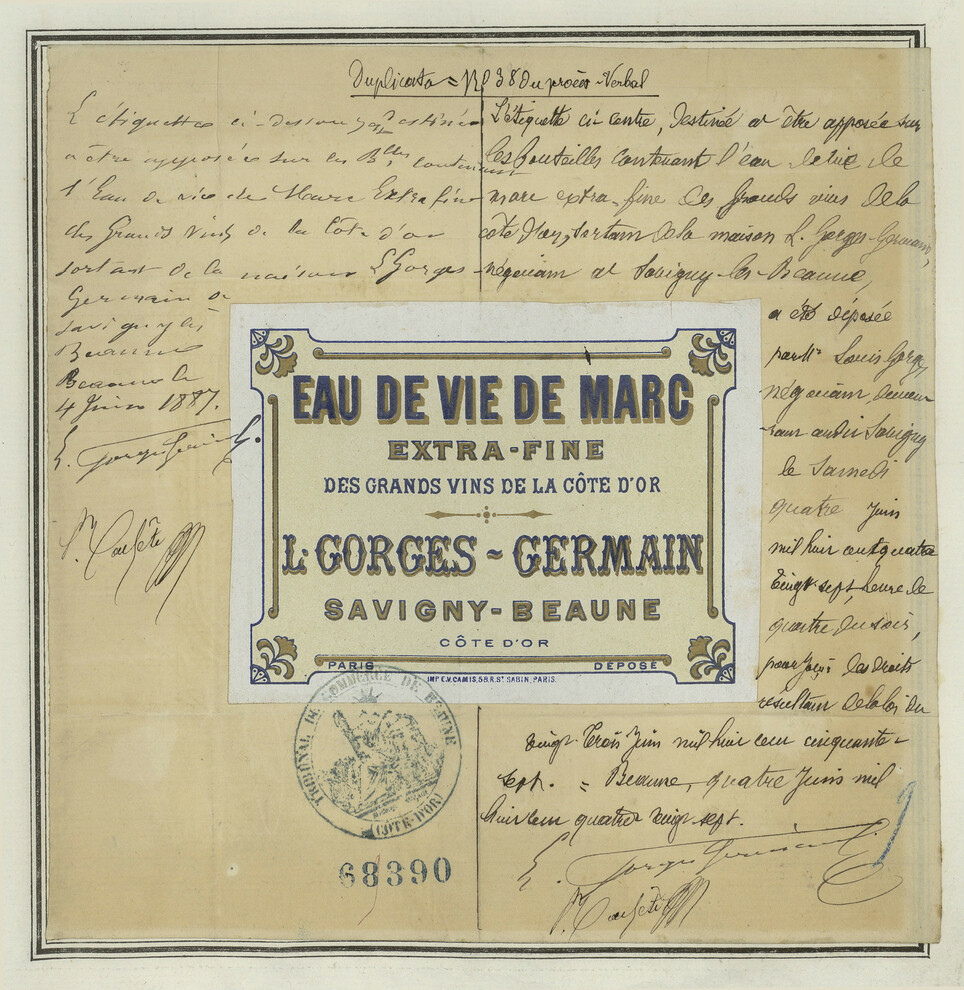 Duplicata = No 38 du procès-Verbal
L'étiquette ci-dessous est destinée
à être apposée sur les Blles contenant
l'Eau de vie de Marc Extra fine
des Grands Vins de la Côte d'or
sortant de la maison L Gorges-
Germain de
Savigny lès
Beaune
Beaune le
4 Juin 1887.
L. Gorges Germain
L'étiquette ci-contre, destinée à être apposée sur
les bouteilles contenant l'eau de vie de
marc extra-fine des Grands vins de la
côte d'or, sortant de la maison L. Gorges-Germain,
négociant à Savigny-lès-Beaune,
a été déposée
par Mr Louis Gorges
négociant, demeu
rant audit Savigny
le Samedi
quatre Juin
mil huit cent quatre
vingt-sept, heure de
quatre du soir,
pour jouir des droits
résultant de la loi du
vingt-trois Juin mil huit cent cinquante-
sept. = Beaune, quatre Juin mil
huit cent quatre vingt sept.
L. Gorges Germain
EAU DE VIE DE MARC
EXTRA-FINE
DES GRANDS VINS DE LA CÔTE D'OR
L. GORGES-GERMAIN
SAVIGNY-BEAUNE
CÔTE D'OR
PARIS
DÉPOSÉ
IMP. E.V. CAMIS, 58, R. St SABIN, PARIS.
TRIBUNAL DE COMMERCE DE BEAUNE
(CÔTE-D'OR)
68390